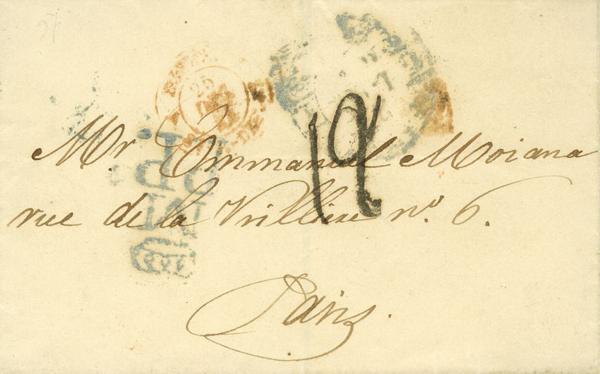 25
12
Mr Emmanuel Moiana
rue de la Vrillière nº 6.
Paris